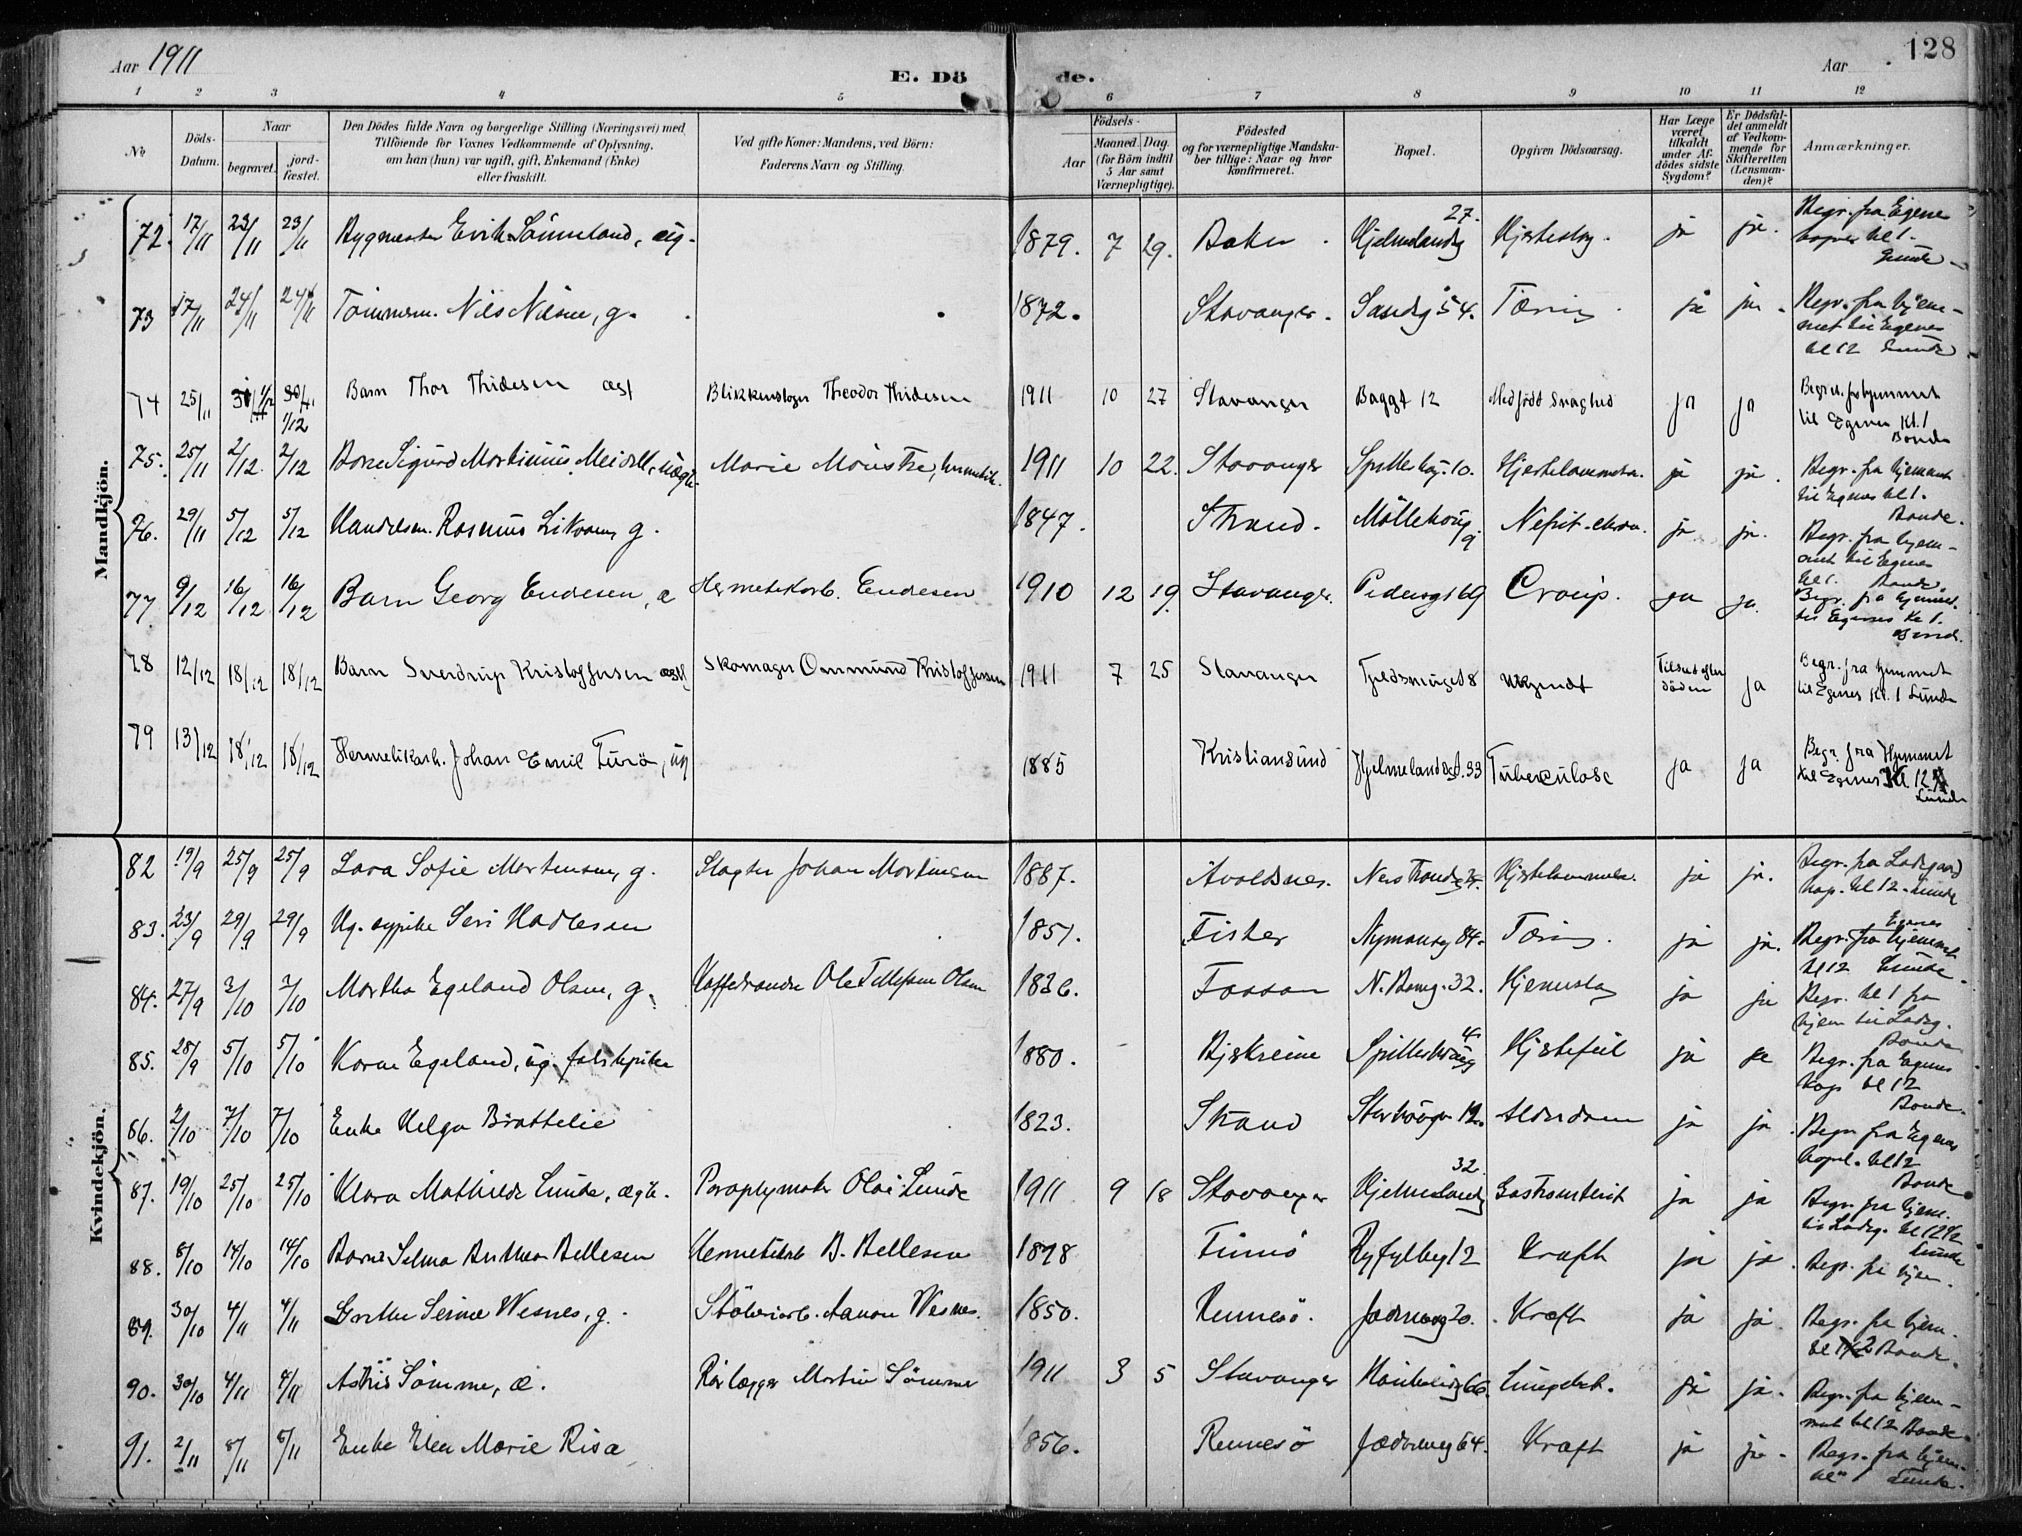 Aar 1911
E. Dö de.
Aar
128
1 2 3 4 5 6 7 8 9 10 11 12
No
Döds-Datum.
Naar
begravet.
jord-fæstet.
Den Dödes fulde Navn og borgerlige Stilling (Næringsvei) med
Tilföiende for Voxnes Vedkommende af Oplysning,
om han (hun) var ugift, gift, Enkemand (Enke)
eller fraskilt.
Ved gifte Koner: Mandens, ved Börn:
Faderens Navn og Stilling.
Födsels-
Aar
Maaned. Dag.
(for Börn indtil
5 Aar samt
Værnepligtige).
Födested
og for værnepligtige Mandska-
ber tillige: Naar og hvor
konfirmeret.
Bopæl.
Opgiven Dödsaarsag.
Har Læge
været
tilkaldt
under Af-
dödes sidste
Sygdom?
Er Dödsfal-
det anmeldt
af Vedkom-
mende for
Skifteretten
(Lensman-
den)?
Anmærkninger.
Mandkjön.
72. 17/11 23/11 23/11 Bygmester Erik Sömeland, ug. 1879. 7 29. Hjelmelandsg 27. Hjerteslag. ja ja. Begr. fra Egenes
kl 1.
Lunde
73 17/11 24/11 24/11 Tömmerm. Nils Nilsen, g. 1872. Stavanger. Sandsg 54. Tæring ja ja. Begr. fra hjem-
met til Egenes
kl 12 Lunde
74 25/11 1/12 Barn Thor Thidesen ægt Blikkenslager Theodor Thidesen 1911 10 27 Stavanger Baggt 12 Medfödt Svaghed ja ja Begr. fra hjemmet
til Egenes Kl. 1
Bonde
75. 25/11 2/12 2/12 Barn Sigurd Martinius Meidell, uægte. Marie 1911 10 22. Stavanger 10. ja ja. Begr. fra hjemmet
til Egenes kl 1.
Bonde.
76. 29/11 5/12 5/12 Handelsm. Rasmus g. 1847. Strand. 9 Nefrit. chron. ja ja. Begr. fra hjem-
met til Egenes
kl 1. Bonde.
77. 9/12 16/12 16/12 Barn Georg Endresen, æ Hermetikarb. Endresen 1910 12 19. Stavanger. Pedersgt 69 Croup. ja ja. Begr. fra hjemmet
til Egenes Kl 1.
78 12/12 18/12 18/12 Barn Sverdrup Kristoffersen ægte Skomager Ommund Kristoffersen 1911 7 25 Stavanger 8 ukjendt Tilsed efter
döden ja Begr. fra hjemmet
til Egenes Kl. 1 Lunde
79 13/12 18/12 18/12 Hermetikarb. Johan Emil Turö, ug 1885 Kristiansund Hjelmelandsgt. 33 Tuberculose ja ja Begr. fra Hjemmet
til Egenes Kl 12
Lunde
Kvindekjön.
82 19/9 25/9 25/9 Lara Sofie Mortensen, g. Slagter Johan Mortensen 1887. Avaldsnes. ja ja. Begr. fra Ladegaard
kap. kl 12. Lunde
83. 23/9 29/9 29/9 Siri Hadlesen 1851. Fister Nymansg 84. Tæring. ja ja. Begr. fra Egenes
kl 12 Lunde.
84. 27/9 3/10 3/10 Martha Egeland Olsen, g. Ole Tollefsen Olsen 1836. Fossan 32. ja ja Begr. kl 1 fra
hjem til Ladeg.
Bonde
85. 28/9 5/10 5/10 Karen Egeland, ug. 1880. Bjerkreim Hjertefeil ja ja Begr. fra Egenes
Kap kl 12
Bonde.
86. 2/10 7/10 7/10 Enke Helga Brattelie 1823. Strand 12. Alderdom ja ja. Begr. fra Egenes
kapel. kl 12
Bonde
87. 19/10 25/10 25/10 Klara Mathilde Lunde, ægte. Paraplymaker Olai Lunde 1911 9 18 Stavanger Hjelmelandsg 32. Gastroenterit ja ja Begr. fra hjem.
til Ladeg. kl 12 1/2
Lunde
88. 8/10 14/10 14/10 Selma Bellesen Hermetikarb B. Bellesen Finnö Ryfylkeg 12 Kræft ja ja. Begr. fra hjem.
89. 30/10 4/11 4/11 Grethe Serine Wesnes, g. Stöberiarb. Aanon Wesnes. 1850. Rennesö. Jæderveg 20. Kræft ja ja. Begr. fra hjem.
Bonde.
90. 30/10 4/11 4/11 Astrid Sömme, æ. Rörlægger Martin Sömme 1911 3 5 Stavanger 66. ja ja. Begr. fra hjem-
met kl 12 Bonde.
91. 2/11 8/11 8/11 Enke Elen Marie Risa 1856. Rennesö Jæderveg 64. Kræft ja ja. Begr. fra hjem-
kl 1 Lunde.